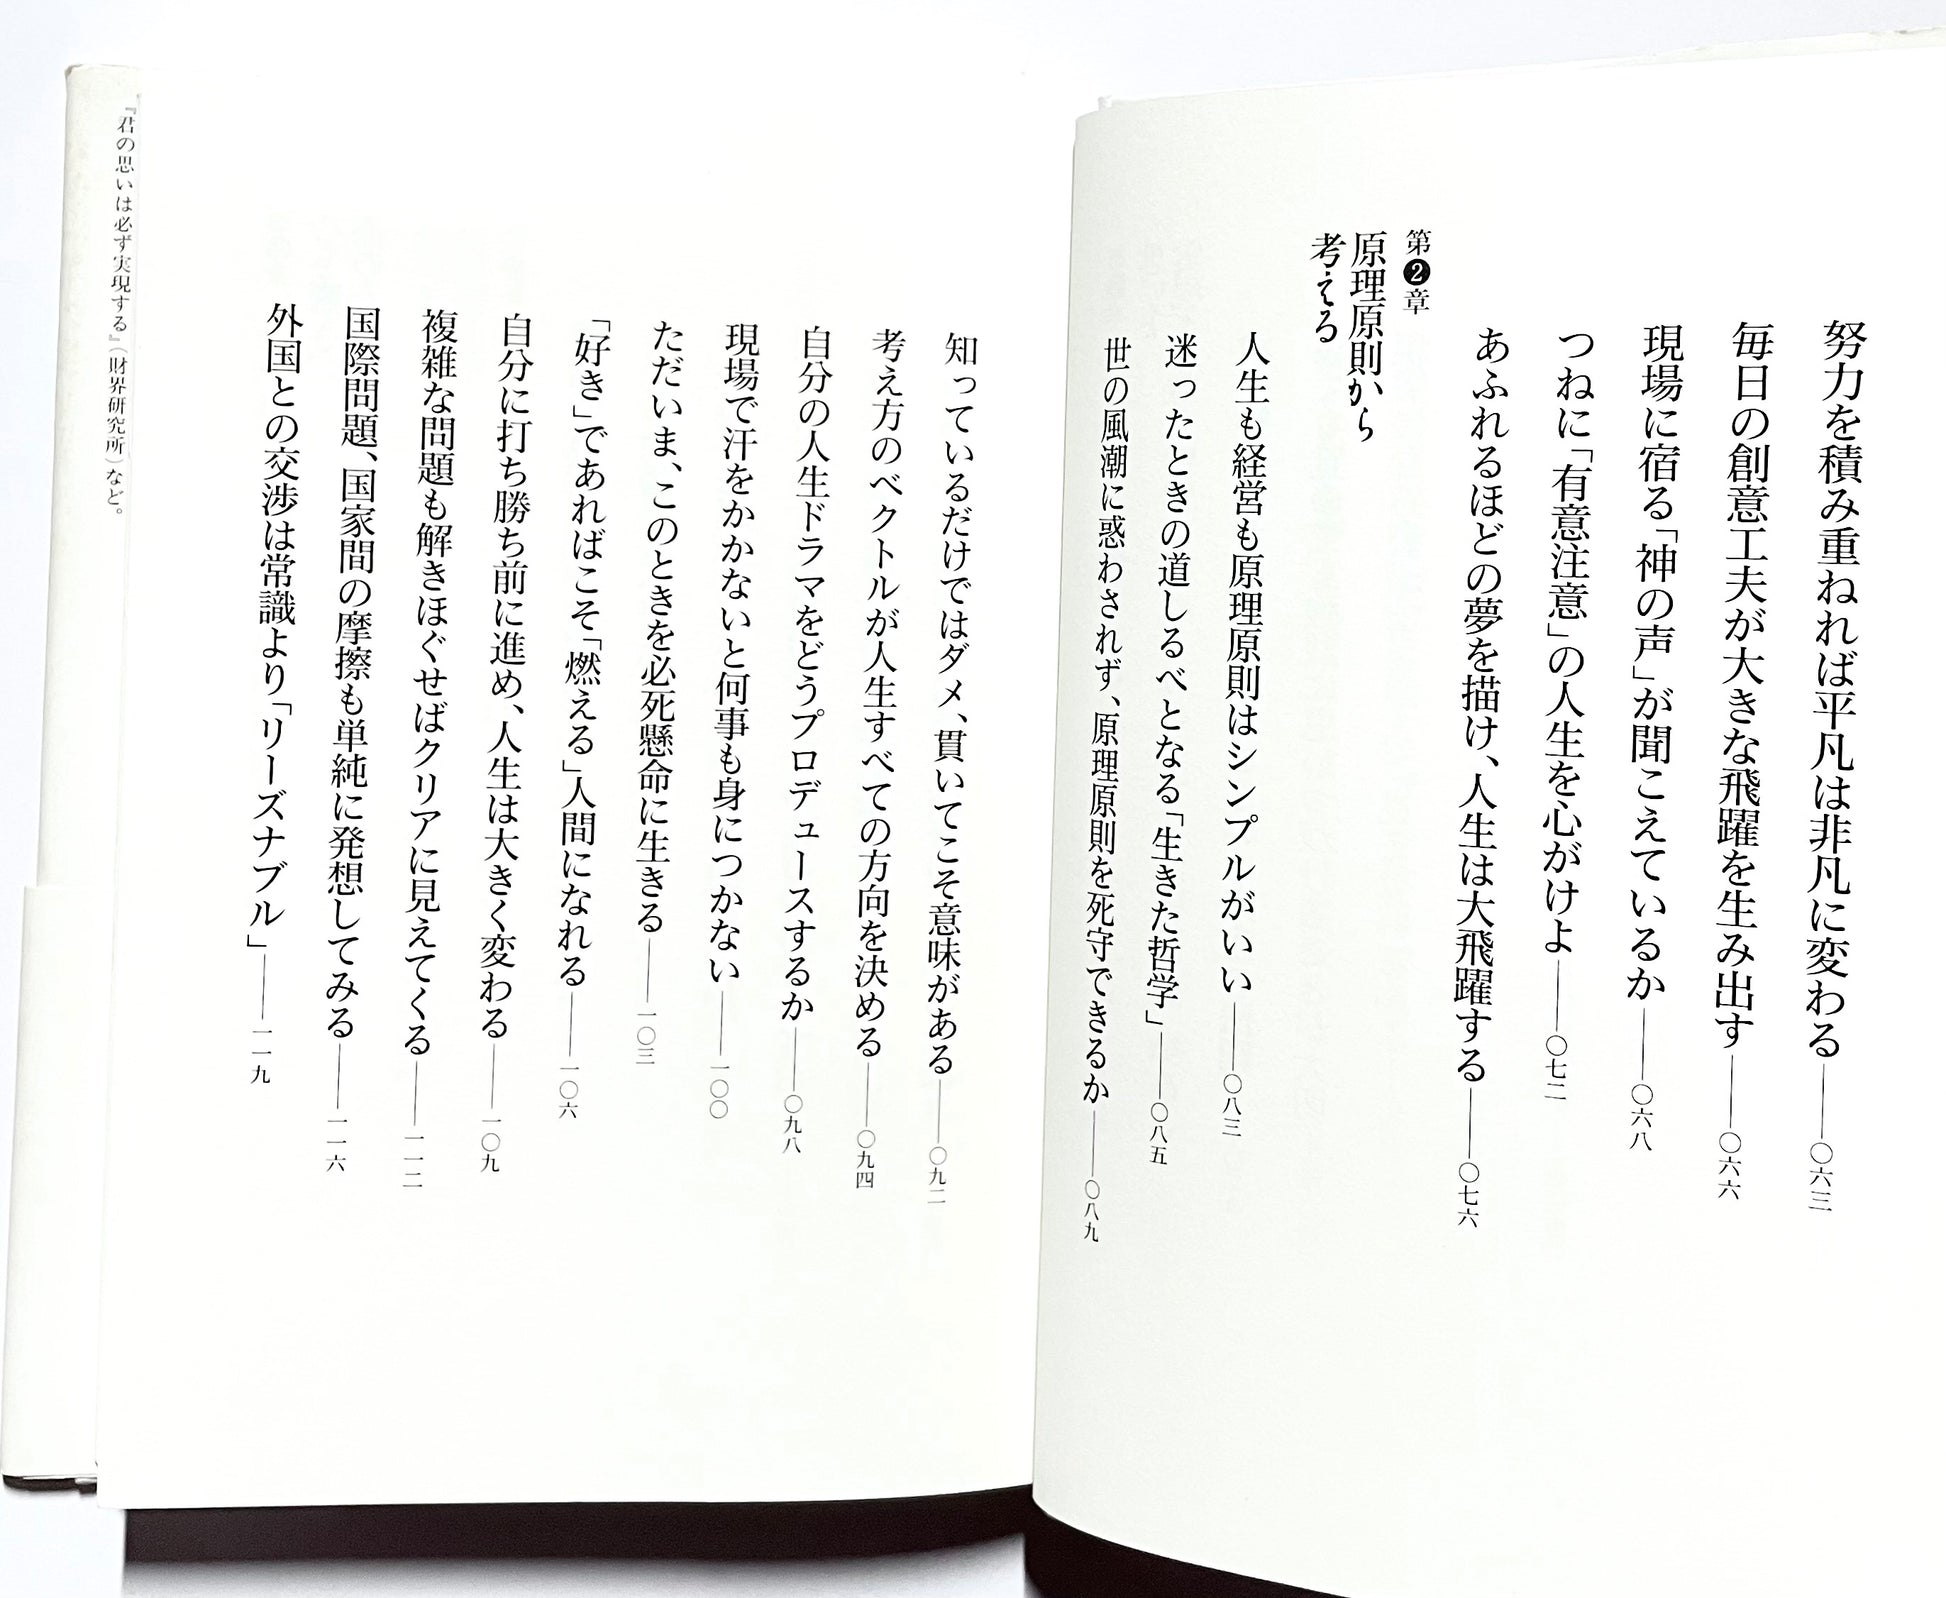 努力を積み重ねれば平凡は非凡に変わる――〇六三
毎日の創意工夫が大きな飛躍を生み出す――〇六六
現場に宿る「神の声」が聞こえているか――〇六八
つねに「有意注意」の人生を心がけよ――〇七二
あふれるほどの夢を描け、人生は大飛躍する――〇七六
第❷章
原理原則から
考える
人生も経営も原理原則はシンプルがいい――〇八三
迷ったときの道しるべとなる「生きた哲学」――〇八五
世の風潮に惑わされず、原理原則を死守できるか――〇八九
知っているだけではダメ、貫いてこそ意味がある――〇九二
考え方のベクトルが人生すべての方向を決める――〇九四
自分の人生ドラマをどうプロデュースするか――〇九八
現場で汗をかかないと何事も身につかない――一〇〇
ただいま、このときを必死懸命に生きる――一〇三
「好き」であればこそ「燃える」人間になれる――一〇六
自分に打ち勝ち前に進め、人生は大きく変わる――一〇九
複雑な問題も解きほぐせばクリアに見えてくる――一一二
国際問題、国家間の摩擦も単純に発想してみる――一一六
外国との交渉は常識より「リーズナブル」――一一九
『君の思いは必ず実現する』(財界研究所)など。